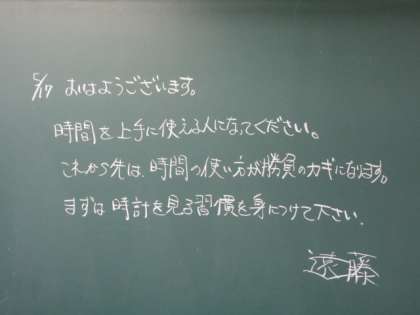 5/17 おはようございます。
時間を上手に使える人になってください。
これから先は、時間の使い方が勝負のカギになります。
まずは時計を見る習慣を身につけて下さい.
遠藤